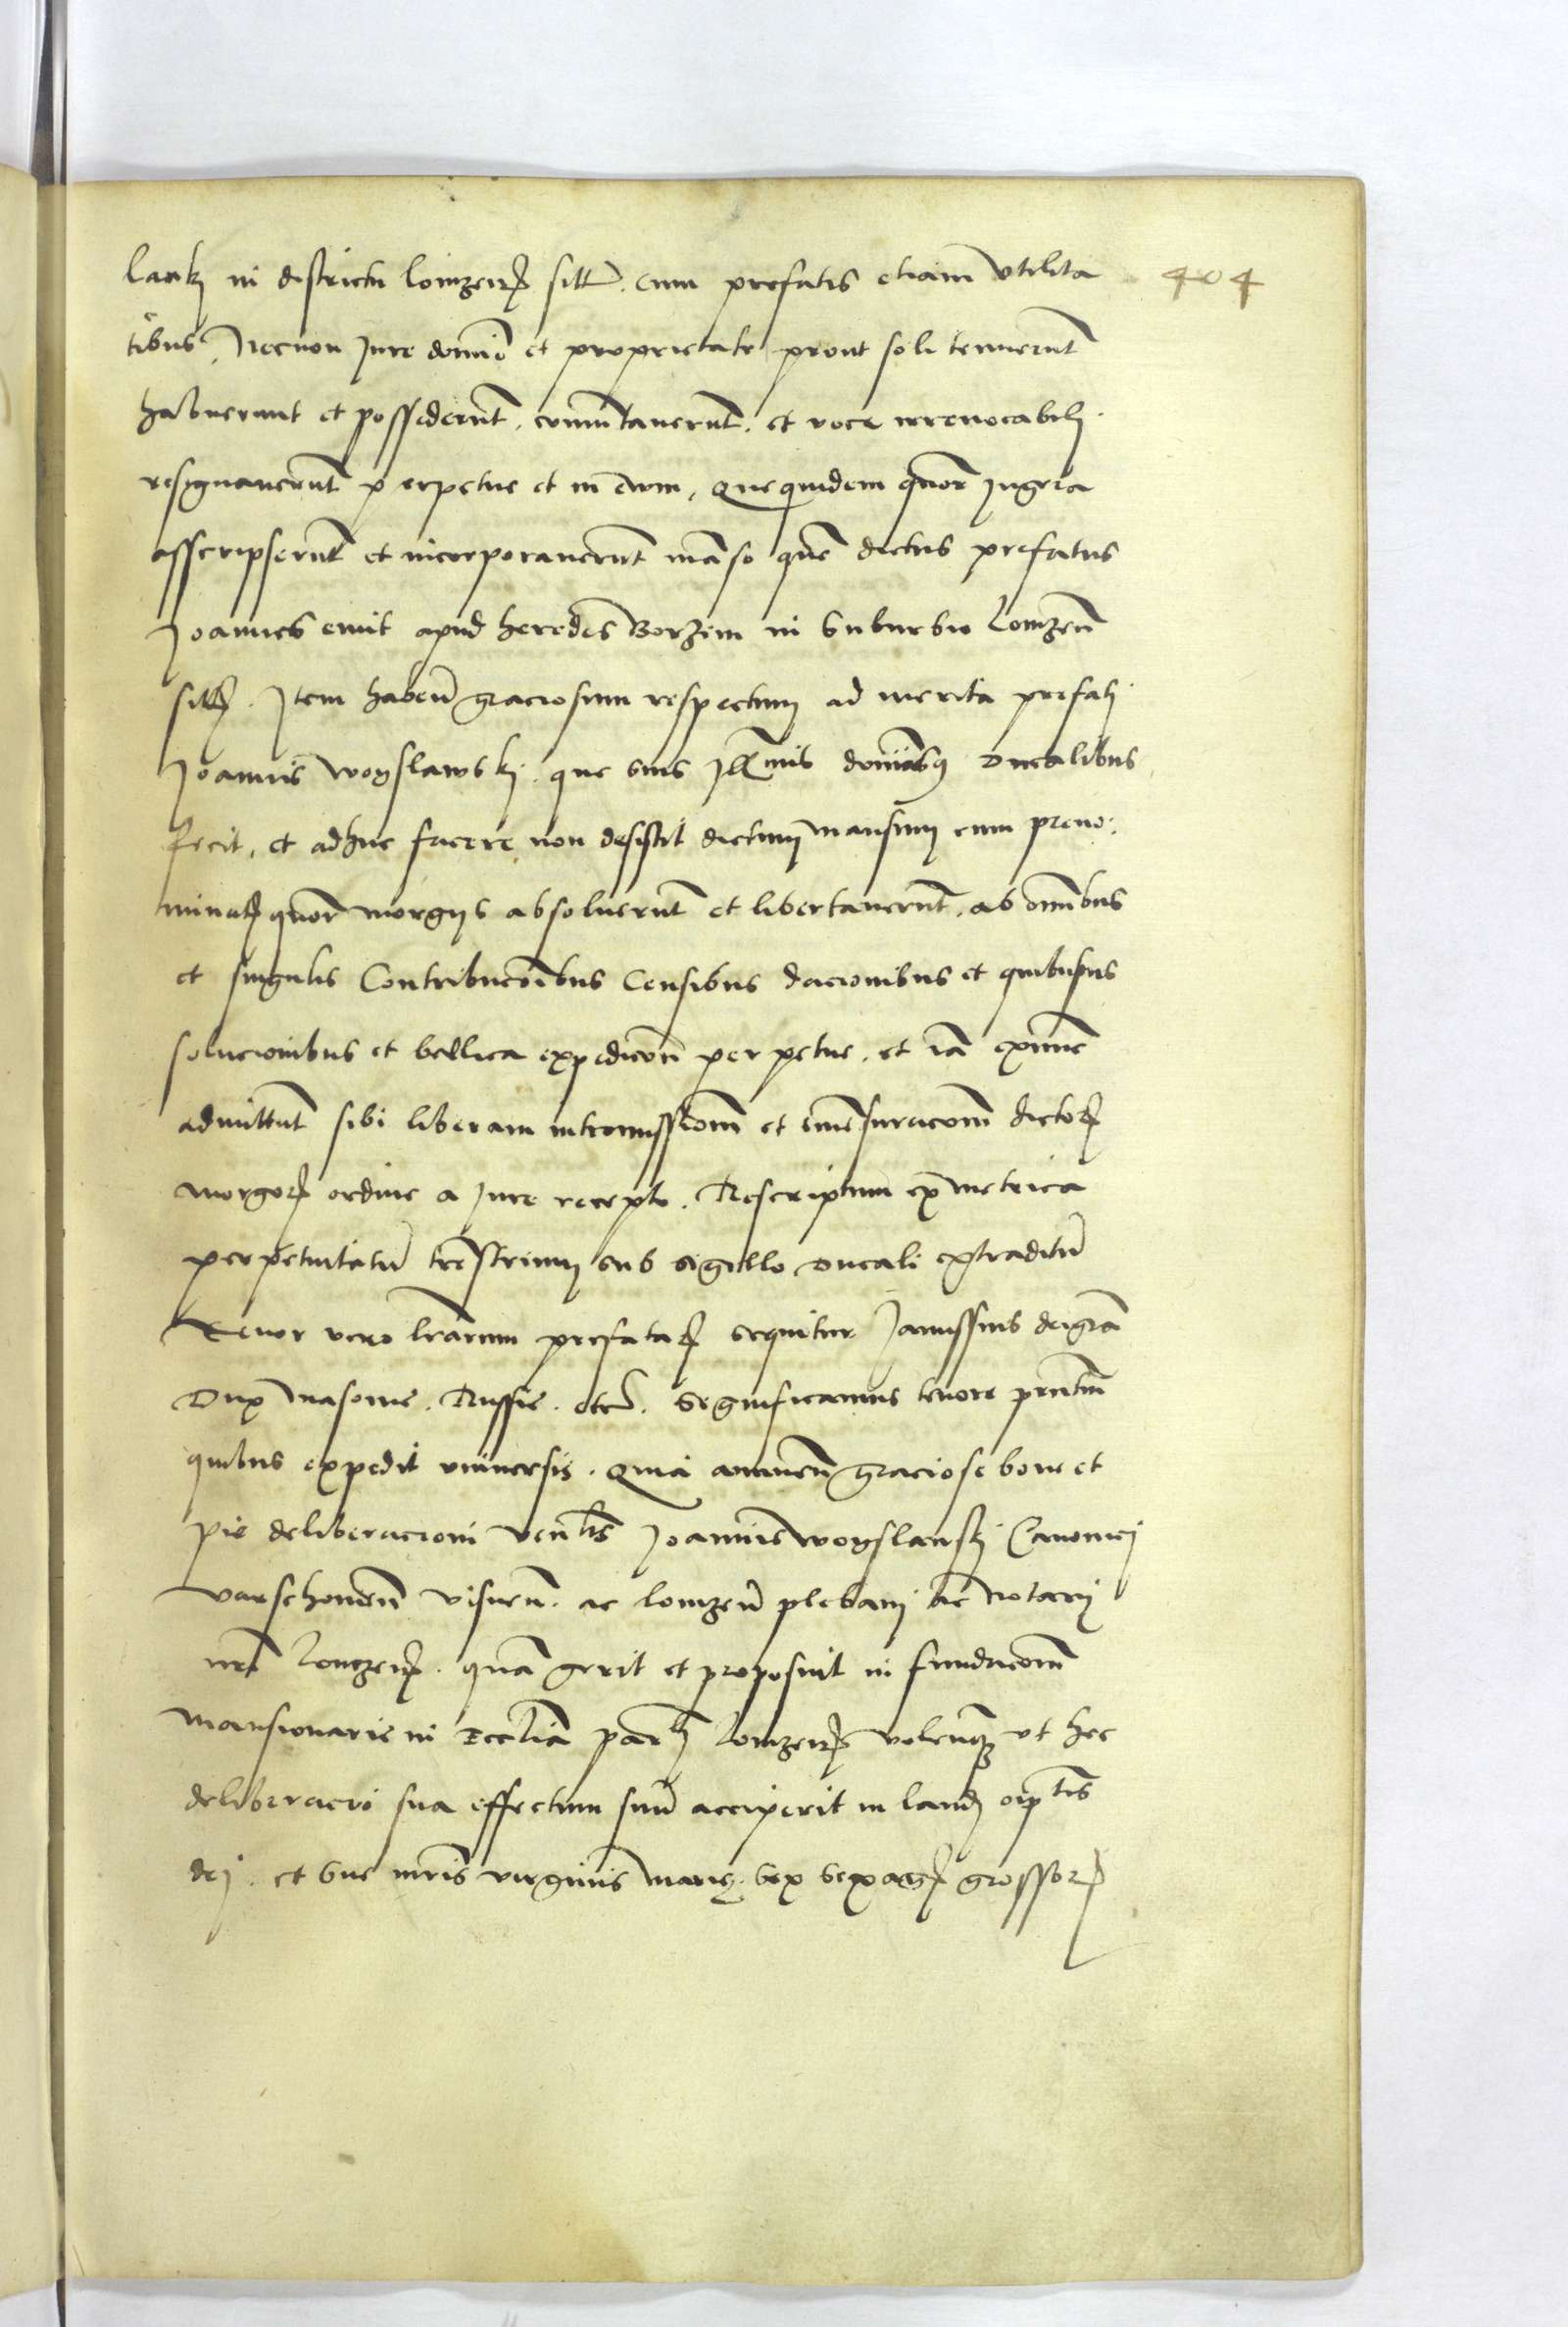 lanki in districtu lomzen sitt. cum prefatis etiam vtilita 404
tibus, Necnon Jure domio et proprietate prout soli tenuerunt
habuerunt et possederunt, comutauerunt, et voce irreuocabili
resignauerunt perpetue et in ewm, Que quidem quor Jugera
asscripserunt et incorporauerunt manso quem dictus prefatus
Joannes emit apud heredes Borzim in suburbio Lomzen
sitt. Item haben graciosum respectum ad merita prefati
Joannis woyslawski. que suis Illmis dominacionibus Ducalibus
fecit, et adhuc facere non desistit dictum mansum cum preno:
minatis quor morgys absoluerunt et libertauerunt, ab omnibus
et singulis Contribucoibus Censibus dacionibus et quibusuis
solucionibus et bellica expediconi perpetue, et iam
admittunt sibi liberam intromissionem et emensuracom dictor
morgor ordine a Jure recepto. Rescriptum ex metrica
perpetuitatum trestrium sub sigillo Ducali extraditum
Tenor vero lrarum prefatar sequitur Janussius dei gra
Dux masouie. Russie. etc. Significamus tenore prntium
quibus expedit vniuersis. Quia annuen graciose bone et
pie deliberacioni venlis Joannis woyslawski Canonici
varschouien visnen. ac lomzen plebani ac Notarij
nri lomzen. quam gerit et proposuit in fundacoem
mansionarie in Ecclia parli lomzen volensque vt hec
deliberacio sua effectum suum acciperit in laudem oiptis
dei. et sue mris virginis marie. sex sexagen grossor